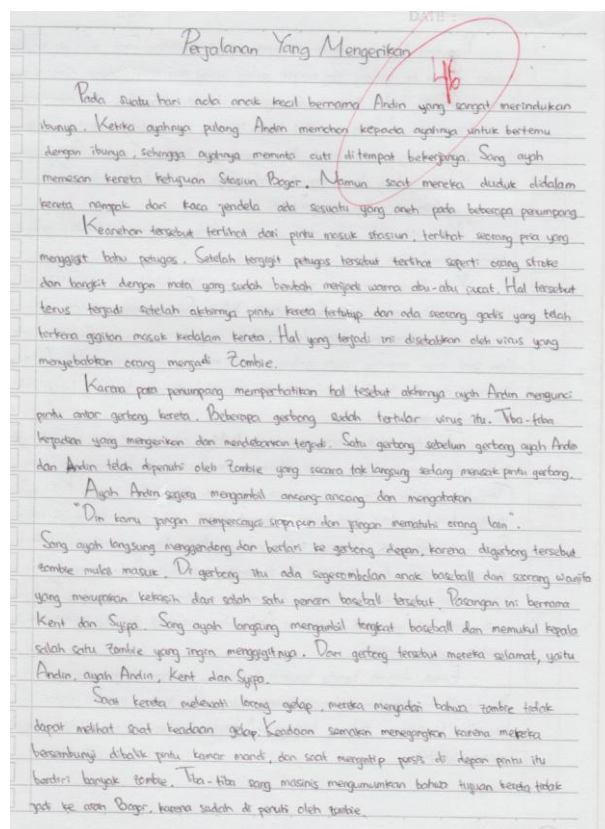 DATE :
Perjalanan Yang Mengerikan
46
Pada suatu hari ada anak kecil bernama Andin yang sangat merindukan
ibunya. Ketika ayahnya pulang Andin memohon kepada ayahnya untuk bertemu
dengan ibunya, sehingga ayahnya meminta cuti ditempat bekerjanya. Sang ayah
memesan kereta ketujuan Stasiun Bogor. Namun saat mereka duduk didalam
kereta nampak dari kaca jendela ada sesuatu yang aneh pada beberapa penumpang
Keanehan tersebut terlihat dari pintu masuk stasiun, terlihat seorang pria yang
menggigit bahu petugas. Setelah tergigit petugas tersebut terlihat seperti orang stroke
dan bangkit dengan mata yang sudah berubah menjadi warna abu-abu pucat. Hal tersebut
terus terjadi setelah akhirnya pintu kereta tertutup dan ada seorang gadis yang telah
terkena gigitan masuk kedalam kereta. Hal yang terjadi ini disebabkan oleh virus yang
menyebabkan orang menjadi Zombie.
Karena para penumpang memperhatikan hal tesebut akhirnya ayah Andin mengunci
pintu antar gerbong kereta. Beberapa gerbong sudah tertular virus itu. Tiba-tiba
kejadian yang mengerikan dan mendebarkan terjadi. Satu gerbong sebelum gerbong ayah Andin
dan Andin telah dipenuhi oleh Zombie yang secara tak langsung sedang merusak pintu gerbong.
Ayah Andin segera mengambil ancang-ancang dan mengatakan
"Din kamu jangan mempercayai siapapun dan jangan mematuhi orang lain".
Sang ayah langsung menggendong dan berlari ke gerbong depan, karena digerbong tersebut
zombie mulai masuk. Di gerbong itu ada segerombolan anak baseball dan seorang wanita
yang merupakan kekasih dari salah satu pemain baseball tersebut. Pasangan ini bernama
Kent dan Syipa. Sang ayah langsung mengambil tongkat baseball dan memukul kepala
salah satu Zombie yang ingin menggigitnya. Dari gerbong tersebut mereka selamat, yaitu
Andin, ayah Andin, Kent dan Syipa.
Saat kereta melewati lorong gelap, mereka menyadari bahwa zombie tidak
dapat melihat saat keadaan gelap. Keadaan semakin menegangkan karena mereka
bersembunyi dibalik pintu kamar mandi, dan saat mengintip persis di depan pintu itu
berdiri banyak zombie. Tiba-tiba sang masinis mengumumkan bahwa tujuan kereta tidak
jadi ke arah Bogor, karena sudah di penuhi oleh zombie.